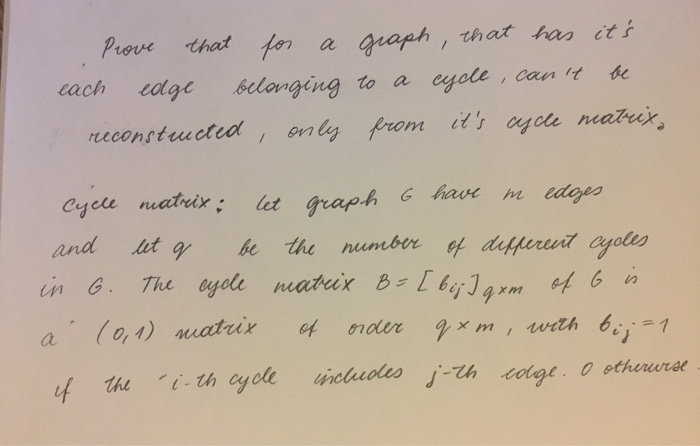 Prove that for a graph, that has it's
each edge belonging to a cycle, can't be
reconstructed, only from it's cycle matrix.
Cycle matrix: let graph G have m edges
and let q be the number of different cycles
in G. The cycle matrix B = [bij]q×m of G is
a (0,1) matrix of order q×m, with bij=1
if the i-th cycle includes j-th edge. 0 otherwise.